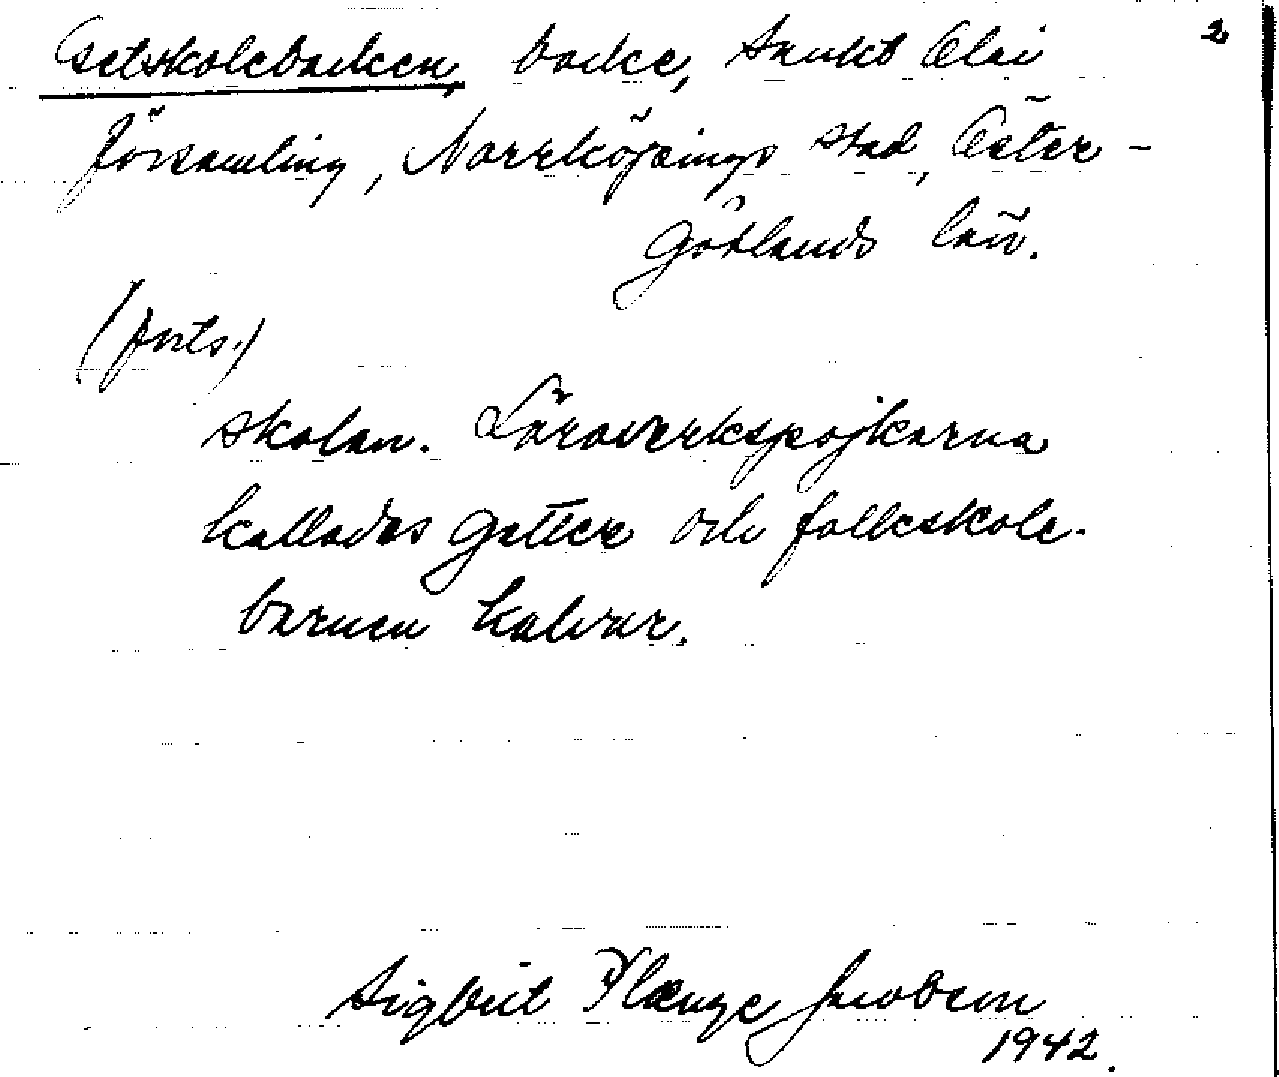 Getskolebacken, backe, Sankt Olai 2
församling, Norrköpings stad, Öster-
götlands län.
(forts.)
skolan. Läroverkspojkarna
kallades getter och folkskole-
barnen kalvar.
Sigbrit Plænge Jacobson
1942.